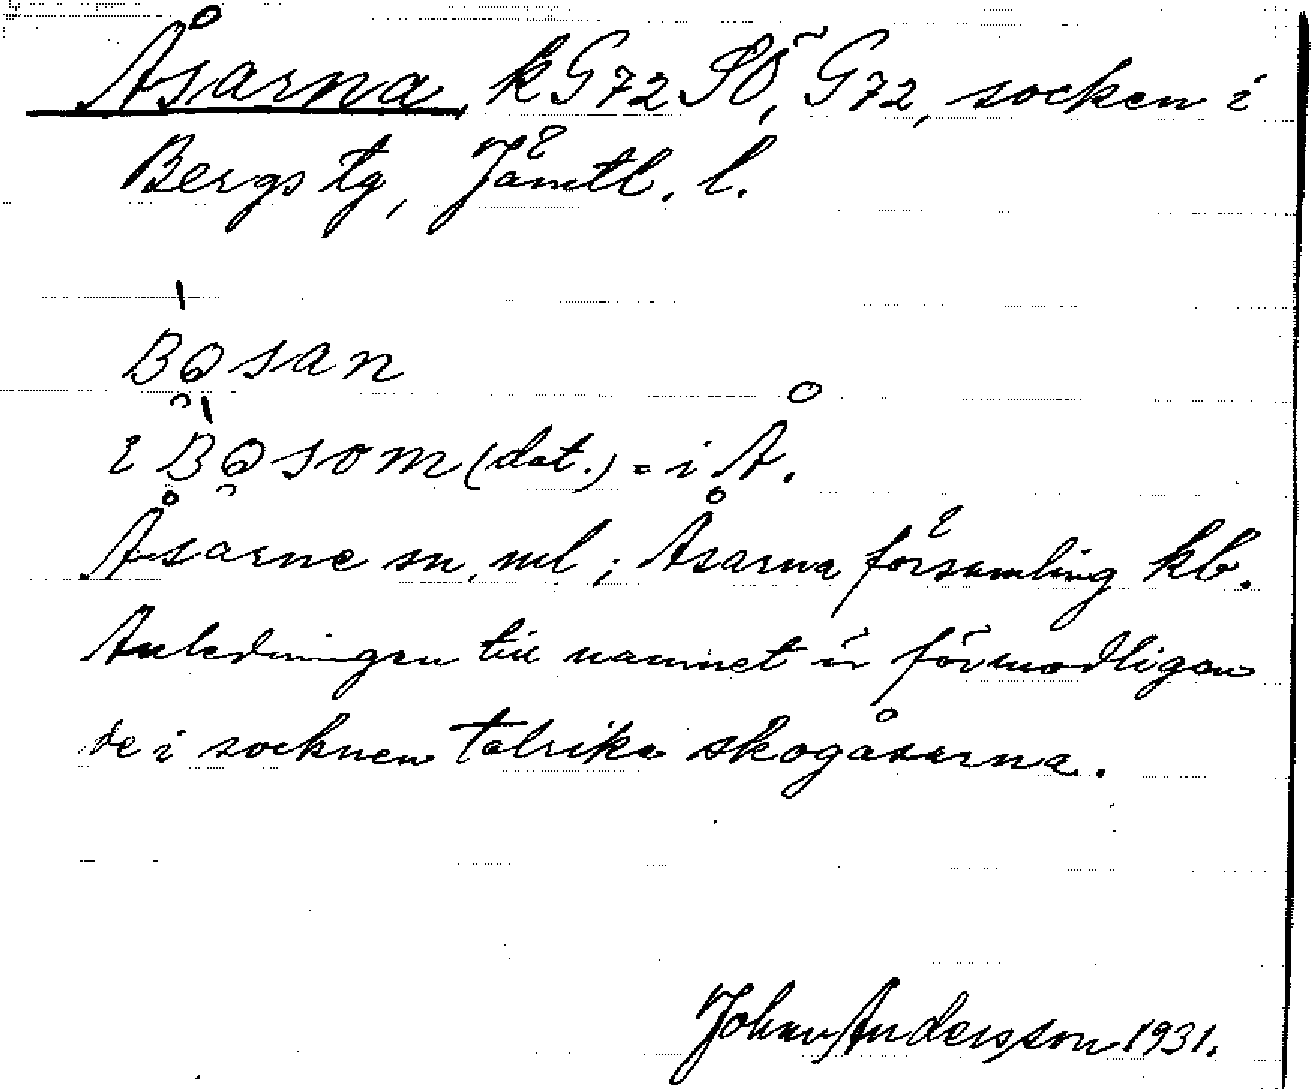 Åsarna, k G72 SÖ, G72, socken i
Bergs tg, Jämtl. l.
i (dat.) = i Å.
Åsarne sn, ml; Åsarna församling kb.
Anledningen till namnet är förmodligen
de i socknen talrika skogåsarna.
Johan Andersson 1931.